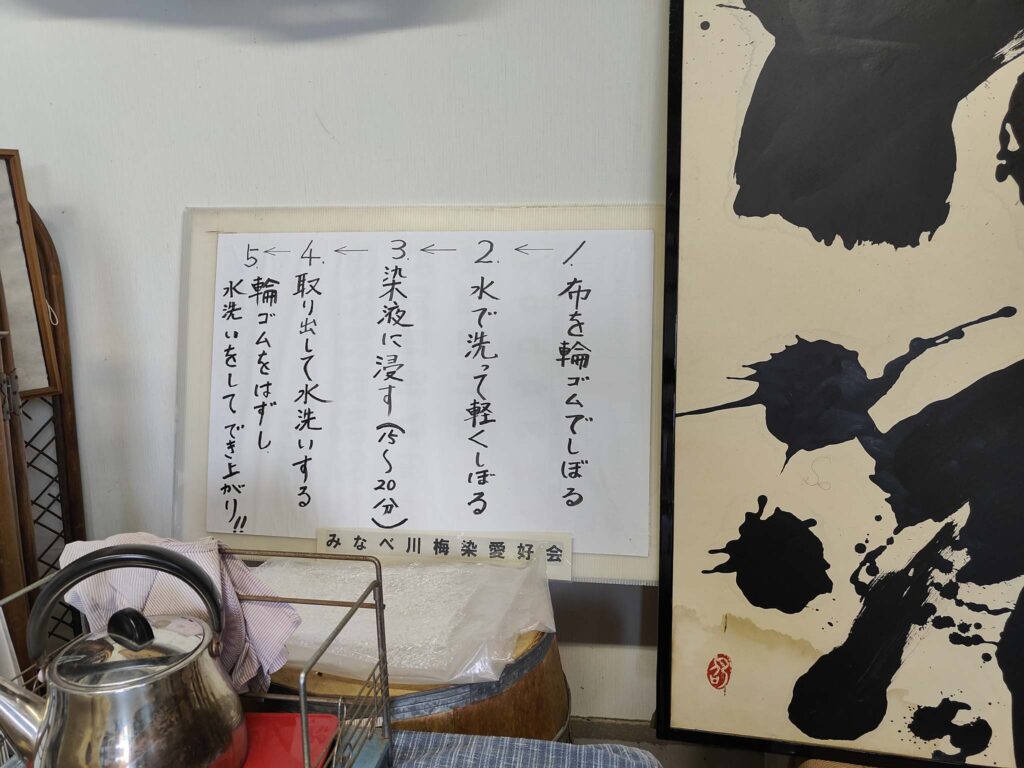 1. 布を輪ゴムでしぼる
←
2. 水で洗って軽くしぼる
←
3. 染液に浸す(15〜20分)
←
4. 取り出して水洗いする
←
5. 輪ゴムをはずし
水洗いをしてでき上がり!!
みなべ川梅染愛好会